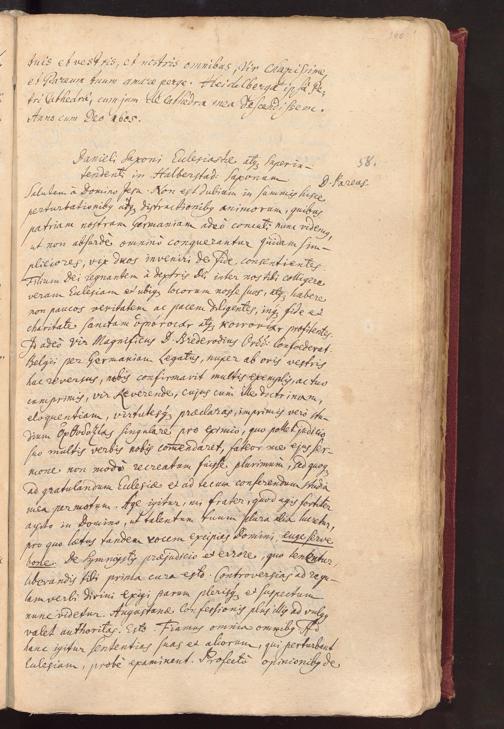 tuis et vestris, et nostris omnibus, Vir Clarissime,
et Pareum tuum amare perge. Heidelbergæ ipsa Pe-
tri Cathedra, cum jam de Cathedra mea descendissem.
Anno cum Deo 1605.
Danieli Saxoni Ecclesiastæ atq; Superin-
tendenti in Halberstad. Saxonum
58.
D. Pareus.
Salutem à Domino Jesu. Non est dubium in summis hisce
perturbationibq atq; distractionibq animorum, quibus
patriam nostram Germaniam adeò concuti nunc videmq,
ut non absurdè omninò conquerantur quidam sim-
pliciores, vix duos inveniri de fide consentientes.
Filium Dei regnantem à dextris sibi inter nos sibi colligere
veram Ecclesiam et ubiq; locorum nosse suos, atq; habere
non paucos veritatem ac pacem diligentes, inq; fide et
charitate sanctam atq; κοινωνίαν profitentes.
Id adeò vir Magnificus D. Brederodius Ord: Confoederat.
Belgii per Germaniam Legatus, nuper ab oris vestris
hac reversus, nobis confirmavit multis exemplis, ac tuo
cumprimis, vir Reverende, cujus cum ille doctrinam,
eloquentiam, virtutesq; præclaras, imprimis verò stu-
dium Ορθοδοξίας singulare, pro eximio, quo pollet judicio
suo multis verbis nobis comendaret, fateor me ejus ser-
mone non modò recreatum fuisse plurimùm, sed quoq;
ad gratulandum Ecclesiæ et ad tecum conferendum studia
mea permotum. Age igitur, mi frater, quod agis fortiter
agito in Domino, ut talentum tuum plura alia lucretur,
pro quo lætus tandem vocem excipias Domini, euge serve
bone. De Symmystis præjudicio et errore, quo tenentur
liberandis tibi prima cura esto. Controversias ad regu-
lam verbi divini exigi parum plerisq; et suspectum
nunc videtur. Augustanæ Confessionis plus illq ad vulgq
valet authoritas. Esto. Fiamus omnia omnibq.
hanc igitur sententias suas et aliorum, qui perturbent
Ecclesiam, probè examinent. Profectò opinionibq de